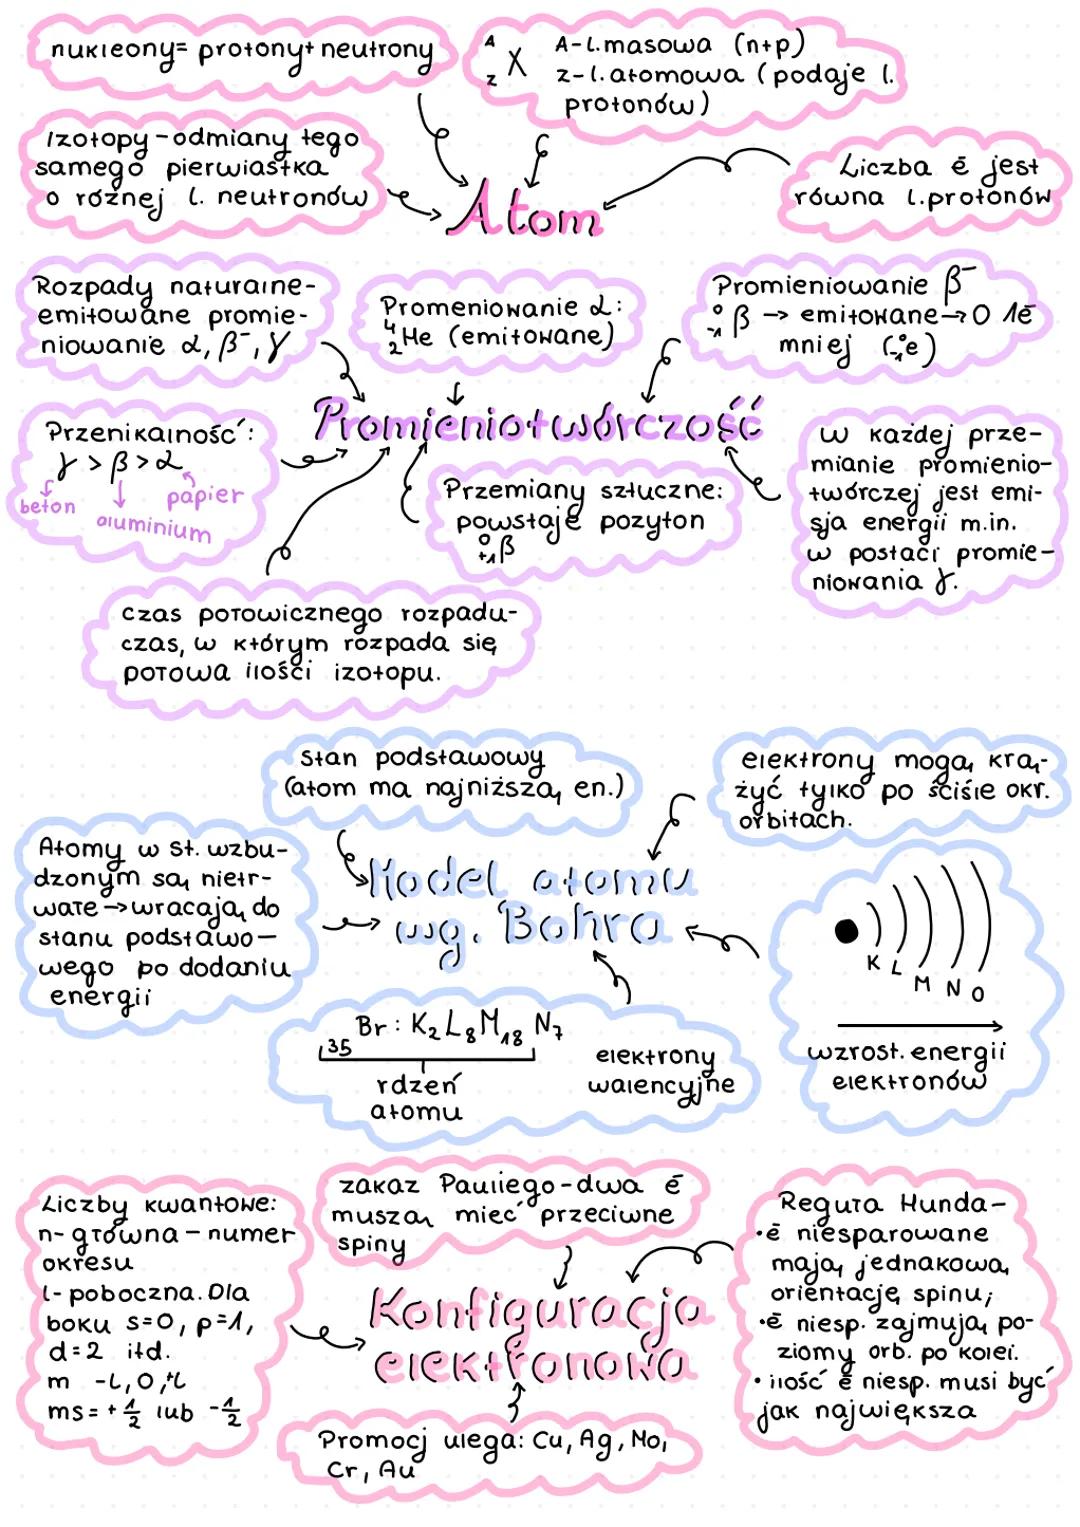 nukleony= protony+ neutrony
A
Z X
A-l.masowa (n+p)
z-l.atomowa (podaje l.
protonów)
Izotopy-odmiany tego
samego pierwiastka
o różnej l. neutronów
Liczba ē jest
równa l.protonów
Atom
Rozpady naturalne-
emitowane promie-
niowanie α, β⁻, γ
Promeniowanie α:
⁴₂He (emitowane)
Promieniowanie β⁻
⁰₋₁β → emitowane→o 1ē
mniej (⁰₋₁e)
Promieniotwórczość
Przenikalność:
γ > β > α
beton
aluminium
papier
Przemiany sztuczne:
powstaje pozyton
⁰₊₁β
w każdej prze-
mianie promienio-
twórczej jest emi-
sja energii m.in.
w postaci promie-
niowania γ.
czas połowicznego rozpadu-
czas, w którym rozpada się
połowa ilości izotopu.
stan podstawowy
(atom ma najniższą en.)
elektrony mogą krą-
żyć tylko po ściśle okr.
orbitach.
Atomy w st. wzbu-
dzonym są nietr-
wałe→wracają do
stanu podstawo-
wego po dodaniu
energii
Model atomu
wg. Bohra
K L M N O
wzrost. energii
elektronów
₃₅Br: K₂L₈M₁₈ N₇
rdzeń
atomu
elektrony
walencyjne
Liczby kwantowe:
n- główna - numer
okresu
l- poboczna. Dla
boku s=0, p=1,
d=2 itd.
m -l, 0, +l
ms= +1/2 lub -1/2
zakaz Pauliego-dwa ē
muszą mieć przeciwne
spiny
Reguła Hunda-
•ē niesparowane
mają jednakową
orientację spinu;
•ē niesp. zajmują po-
ziomy orb. po kolei.
• ilość ē niesp. musi być
jak największa
Konfiguracja
elektronowa
Promocj ulega: Cu, Ag, Mo,
Cr, Au